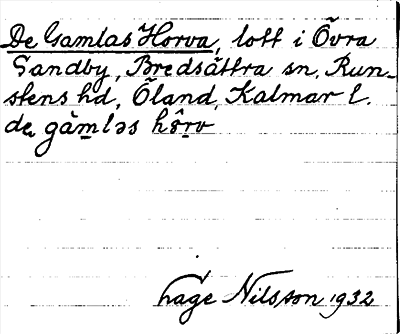 De Gamlas Horva, lott i Övra
Sandby, Bredsättra sn, Run-
stens hd, Öland, Kalmar l.
de gàmləs hô̱rv
Hage Nilsson 1932